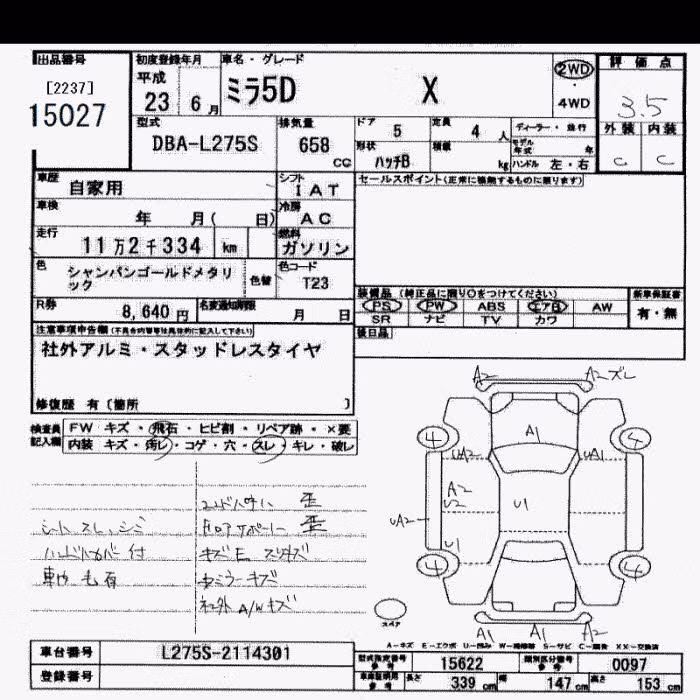 出品番号 初度登録年月 車名・グレード 評価点
[2237] 平成 ミラ5D X 2WD
15027 23 6月 ・ 4WD 3.5
型式 排気量 ドア 定員 ディーラー・並行 外装 内装
DBA-L275S 658 CC 5 4 人 モデル年式 年 C C
形状 積載
ハッチB kg ハンドル 左・右
車歴 自家用 シフト IAT セールスポイント(正常に稼働するものに限ります)
車検 年 月( 日) 冷房 AC
走行 11万2千334 km 燃料 ガソリン
色 シャンパンゴールドメタリック 色替 色コード T23
装備品 (純正品に限り○をつけてください) 新車保証書
R券 8,640円 名変通知期限 月 日 PS PW ABS エアB AW 有・無
SR ナビ TV カワ
注意事項申告欄(不具合内容等は具体的に記入して下さい) 後日品
社外アルミ・スタッドレスタイヤ
修復歴 有 (箇所 )
検査員記入欄 FW キズ・飛石・ヒビ割・リペア跡・×要
内装 キズ・汚レ・コゲ・穴・スレ・キレ・破レ
A2 A2ズレ
4 A1 4
UA2 UA1
A2
U2 U1
UA2
U1
4 4
歪
シート スレ、シミ 歪
ハンドルカバー付 キズE スリキズ
車内 毛有 キズ
社外A/Wキズ
スペア A1 A1 A2
A-キズ E-エクボ U-凹み W-補修跡 S-サビ C-腐食 XX-交換済
車台番号 L275S-2114301
型式指定番号 参考 15622 類別区分番号 参考 0097
登録番号
車庫証明用 参考 長さ 339 cm 幅 147 cm 高さ 153 cm